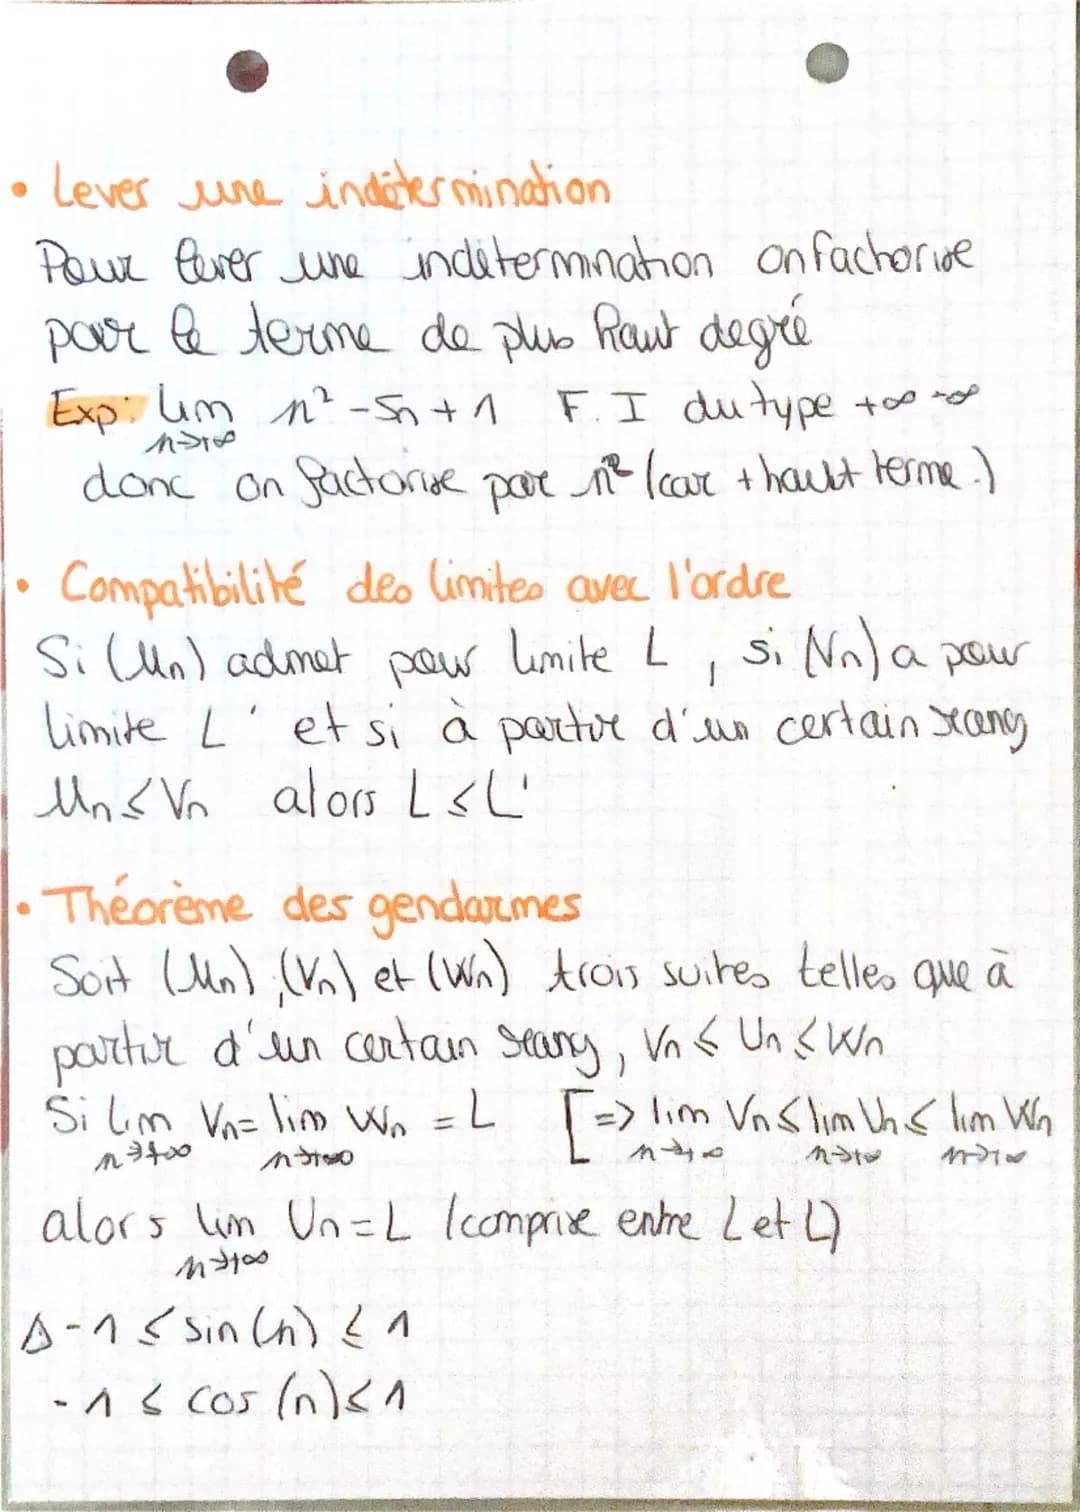 • Lever une indétermination
Pour lever une indétermination on factorise
par le terme de plus haut degré
Exp: lim n² -5n + 1 F.I du type +∞ -∞
n→+∞
donc on factorise par n² (car + haut terme.)
• Compatibilité des limites avec l'ordre
Si (Un) admet pour limite L , si (Vn) a pour
limite L' et si à partir d'un certain rang
Un ≤ Vn alors L ≤ L'
• Théorème des gendarmes
Soit (Un), (Vn) et (Wn) trois suites telles que à
partir d'un certain rang, Vn ≤ Un ≤ Wn
Si lim Vn = lim Wn = L [=> lim Vn ≤ lim Un ≤ lim Wn
n→+∞ n→+∞ n→+∞ n→+∞ n→+∞
alors lim Un = L (comprise entre L et L)
n→+∞
⚠ -1 ≤ sin(n) ≤ 1
-1 ≤ cos (n) ≤ 1